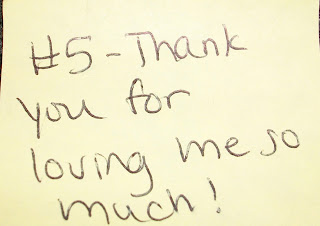 #5-Thank
you for
loving me so
much!